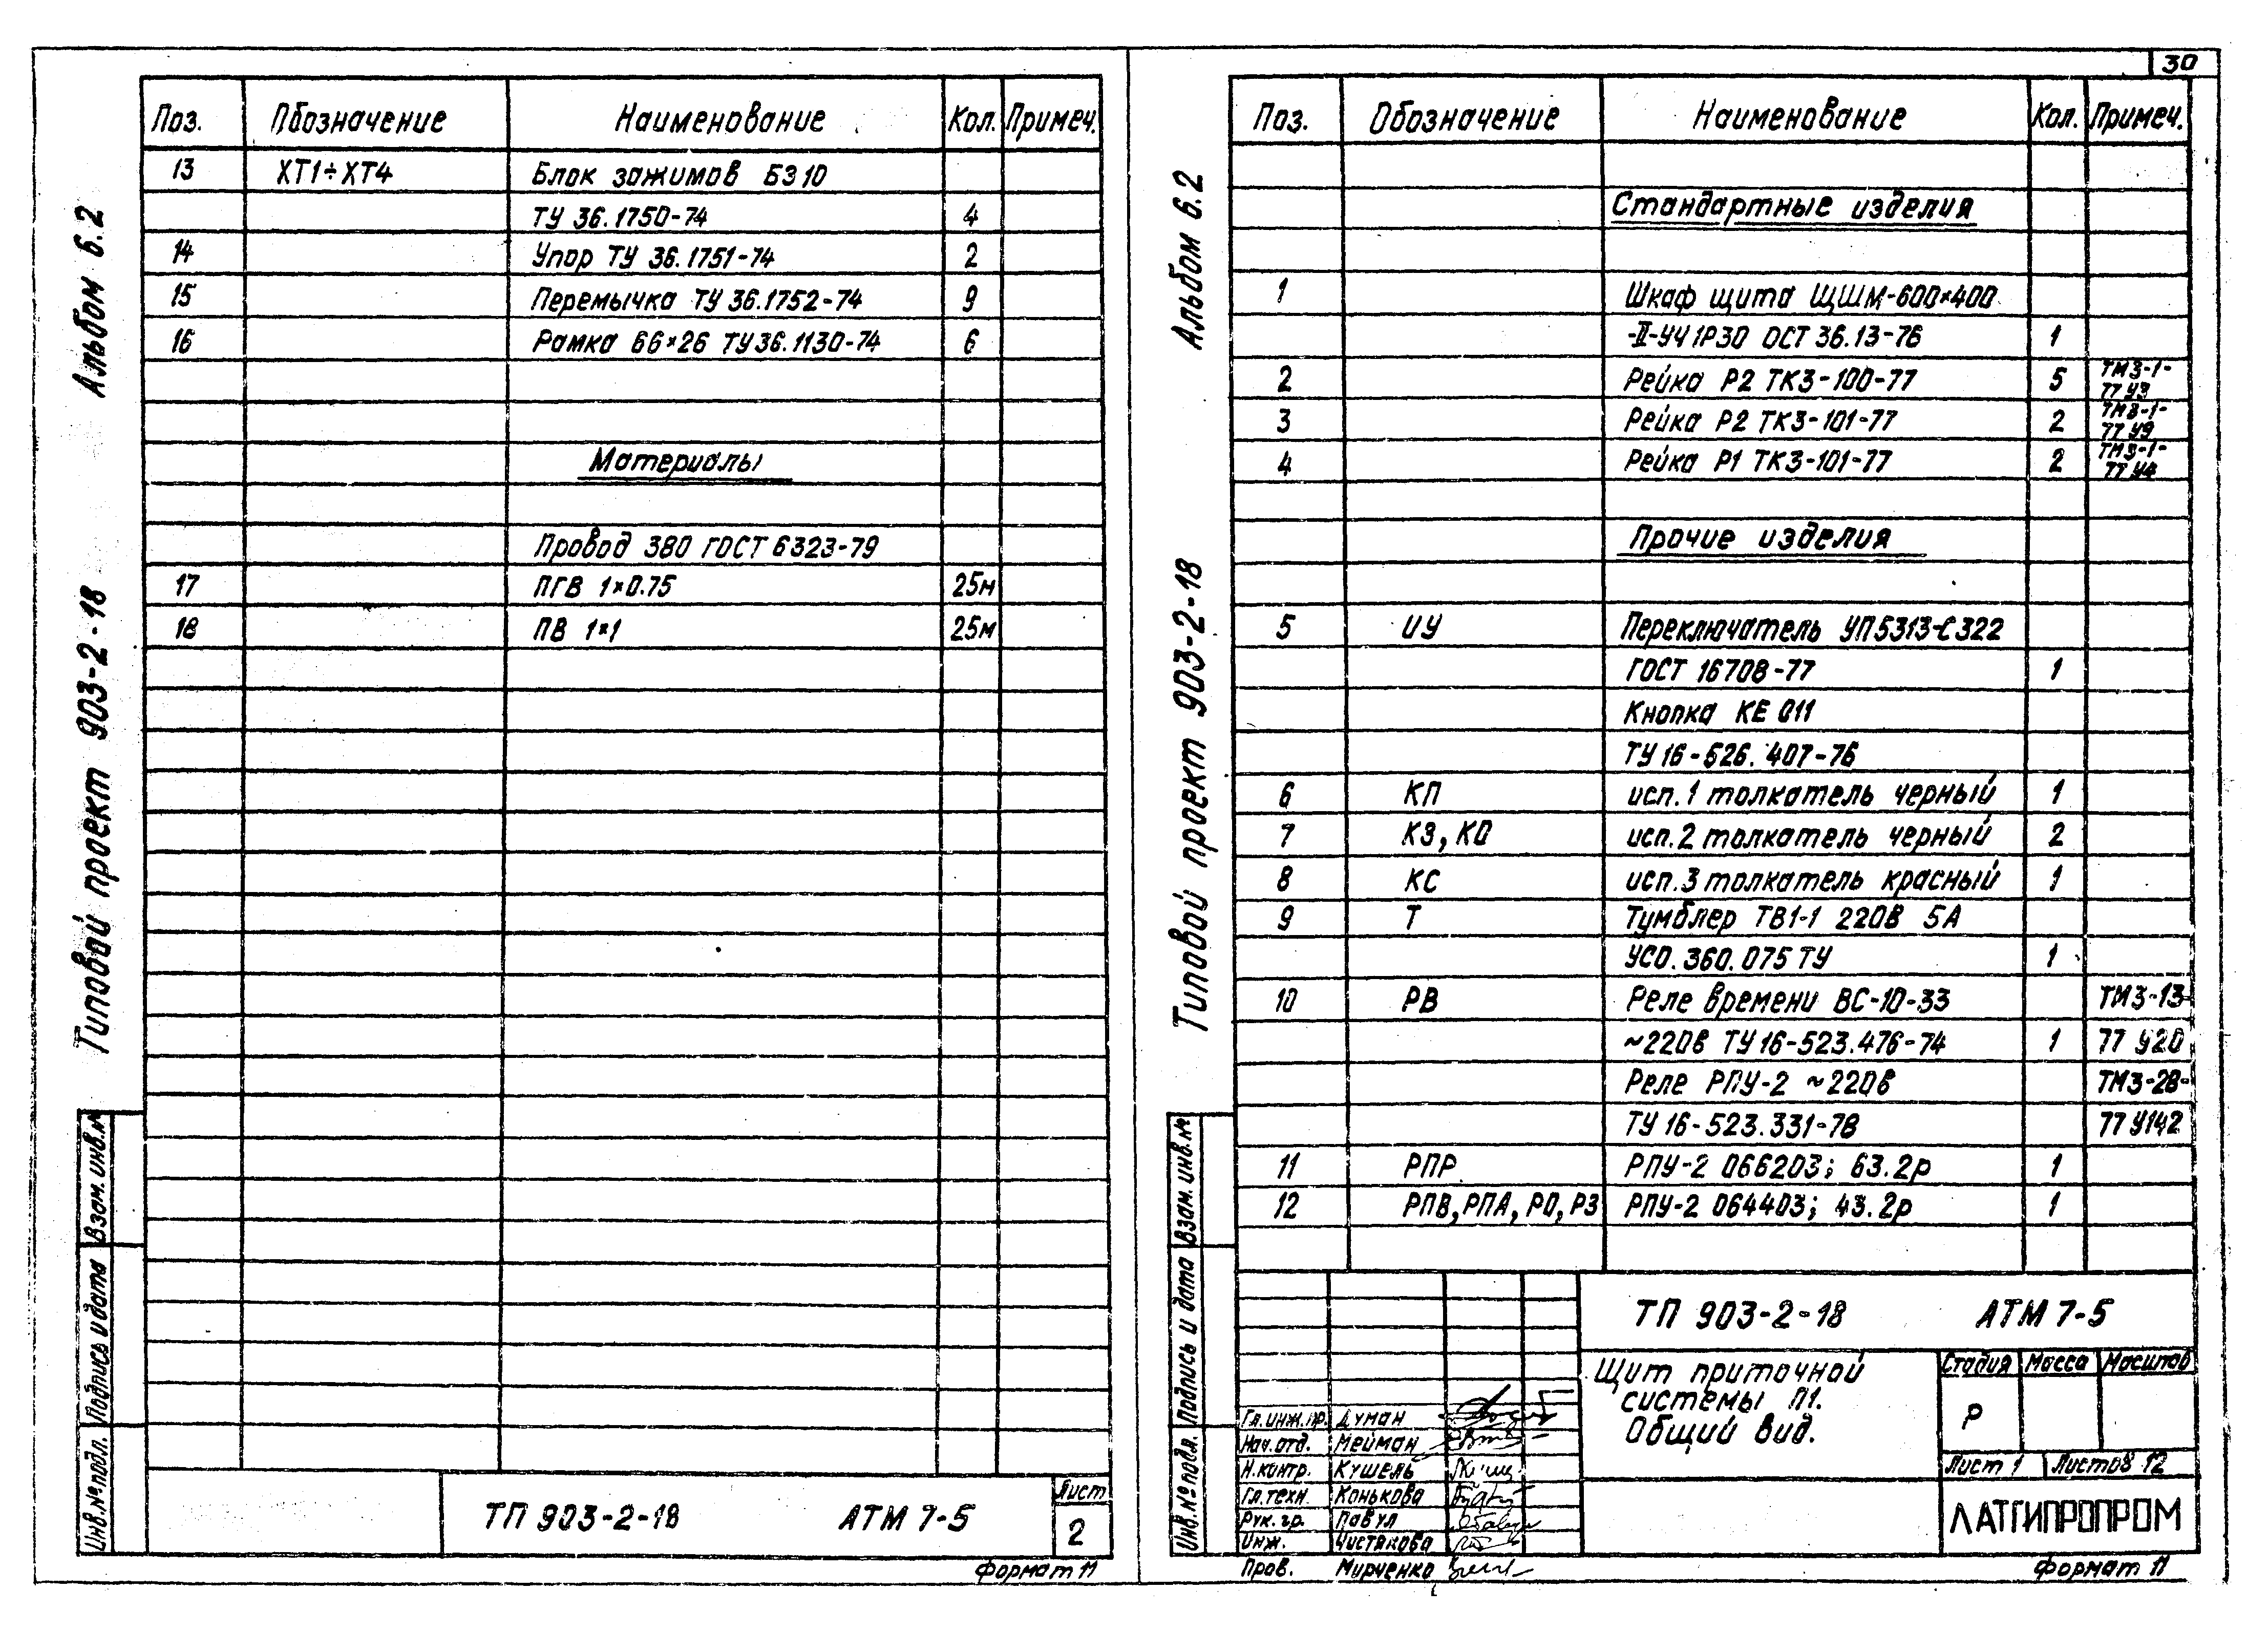 Альбом 6.2
Типовой проект 903-2-18
Поз. Обозначение Наименование Кол. Примеч.
13 ХТ1÷ХТ4 Блок зажимов БЗ10
ТУ 36.1750-74 4
14 Упор ТУ 36.1751-74 2
15 Перемычка ТУ 36.1752-74 9
16 Рамка 66×26 ТУ36.1130-74 6
Материалы
Провод 380 ГОСТ 6323-79
17 ПГВ 1×0.75 25м
18 ПВ 1×1 25м
Взам. инв.№
Подпись и дата
Инв.№подл.
ТП 903-2-18 АТМ 7-5
Лист
2
Формат 11
30
Альбом 6.2
Типовой проект 903-2-18
Поз. Обозначение Наименование Кол. Примеч.
Стандартные изделия
1 Шкаф щита ЩШМ-600×400
-II-УЧ IP30 ОСТ 36.13-76 1
2 Рейка Р2 ТК3-100-77 5 ТМ3-1-
77 У3
3 Рейка Р2 ТК3-101-77 2 ТМ3-1-
77 У9
4 Рейка Р1 ТК3-101-77 2 ТМ3-1-
77 У4
Прочие изделия
5 ИУ Переключатель УП5313-С322
ГОСТ 16708-77 1
Кнопка КЕ 011
ТУ 16-526.407-76
6 КП исп.1 толкатель черный 1
7 КЗ, КО исп.2 толкатель черный 2
8 КС исп.3 толкатель красный 1
9 Т Тумблер ТВ1-1 220В 5А
УСО.360.075 ТУ 1
10 РВ Реле времени ВС-10-33 ТМ3-13-
~220в ТУ 16-523.476-74 1 77 У20
Реле РПУ-2 ~220в ТМ3-28-
ТУ 16-523.331-78 77 У142
11 РПР РПУ-2 066203; 63.2р 1
12 РПВ, РПА, РО, РЗ РПУ-2 064403; 43.2р 1
Взам. инв.№
Подпись и дата
Инв.№подл.
ТП 903-2-18 АТМ 7-5
Щит приточной
системы П1.
Общий вид.
Стадия Масса Масштаб
Р
Лист 1 Листов 12
ЛАТГИПРОПРОМ
Гл.инж.пр. Думан
Нач.отд. Мейман
Н.контр. Кушель
Гл.техн. Конькова
Рук.гр. Павул
Инж. Чистякова
Пров. Мирченко
Формат 11